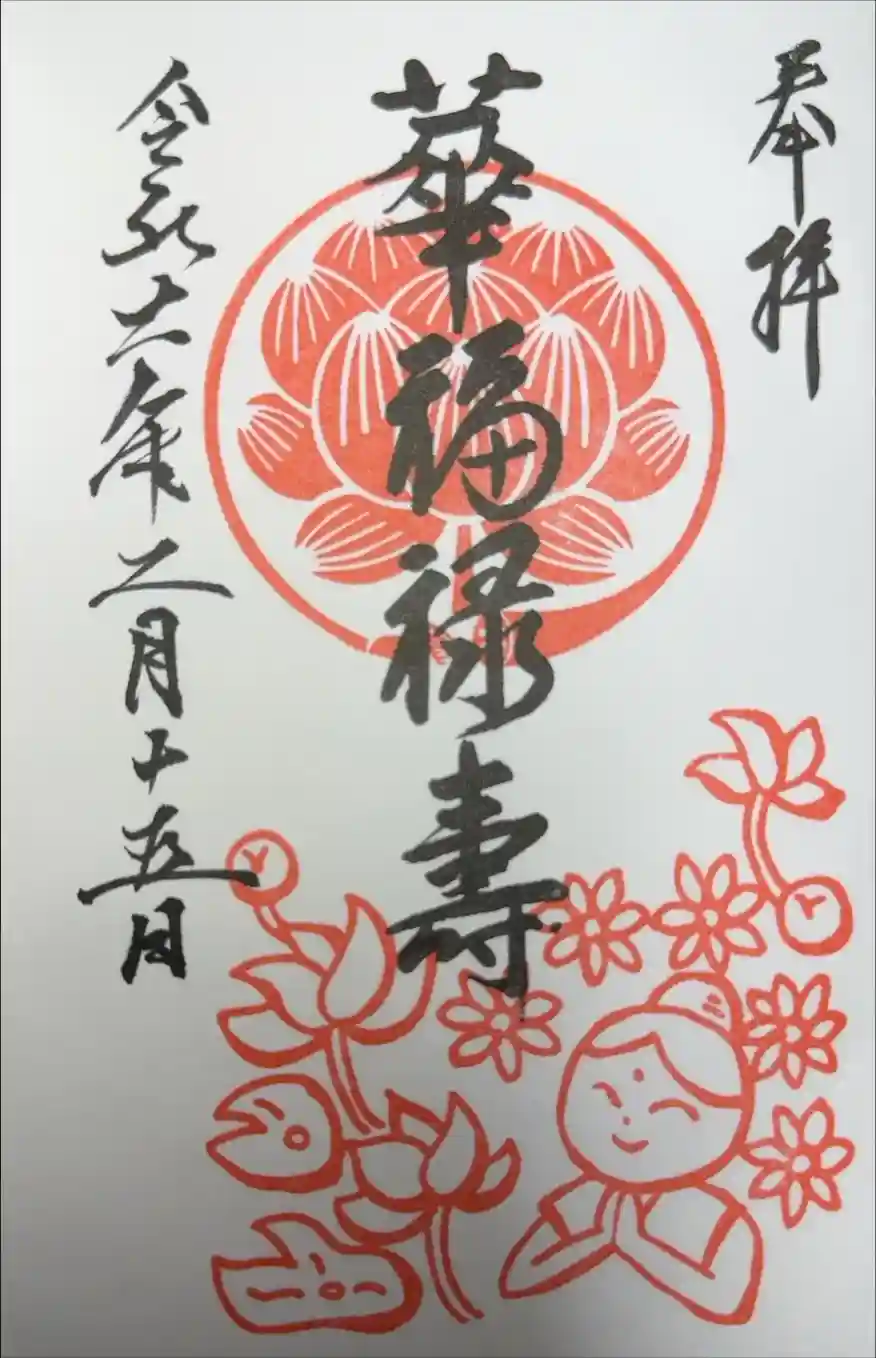 奉拝
華福禄壽
令和六年二月十五日